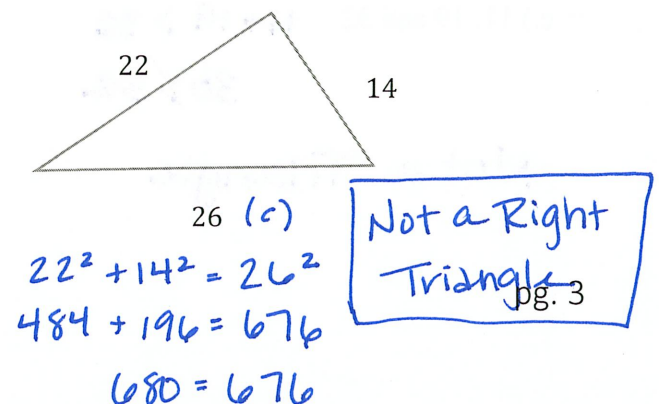 22
14
26 (c)
22² + 14² = 26²
484 + 196 = 676
680 = 676
Not a Right
Triangle
pg. 3